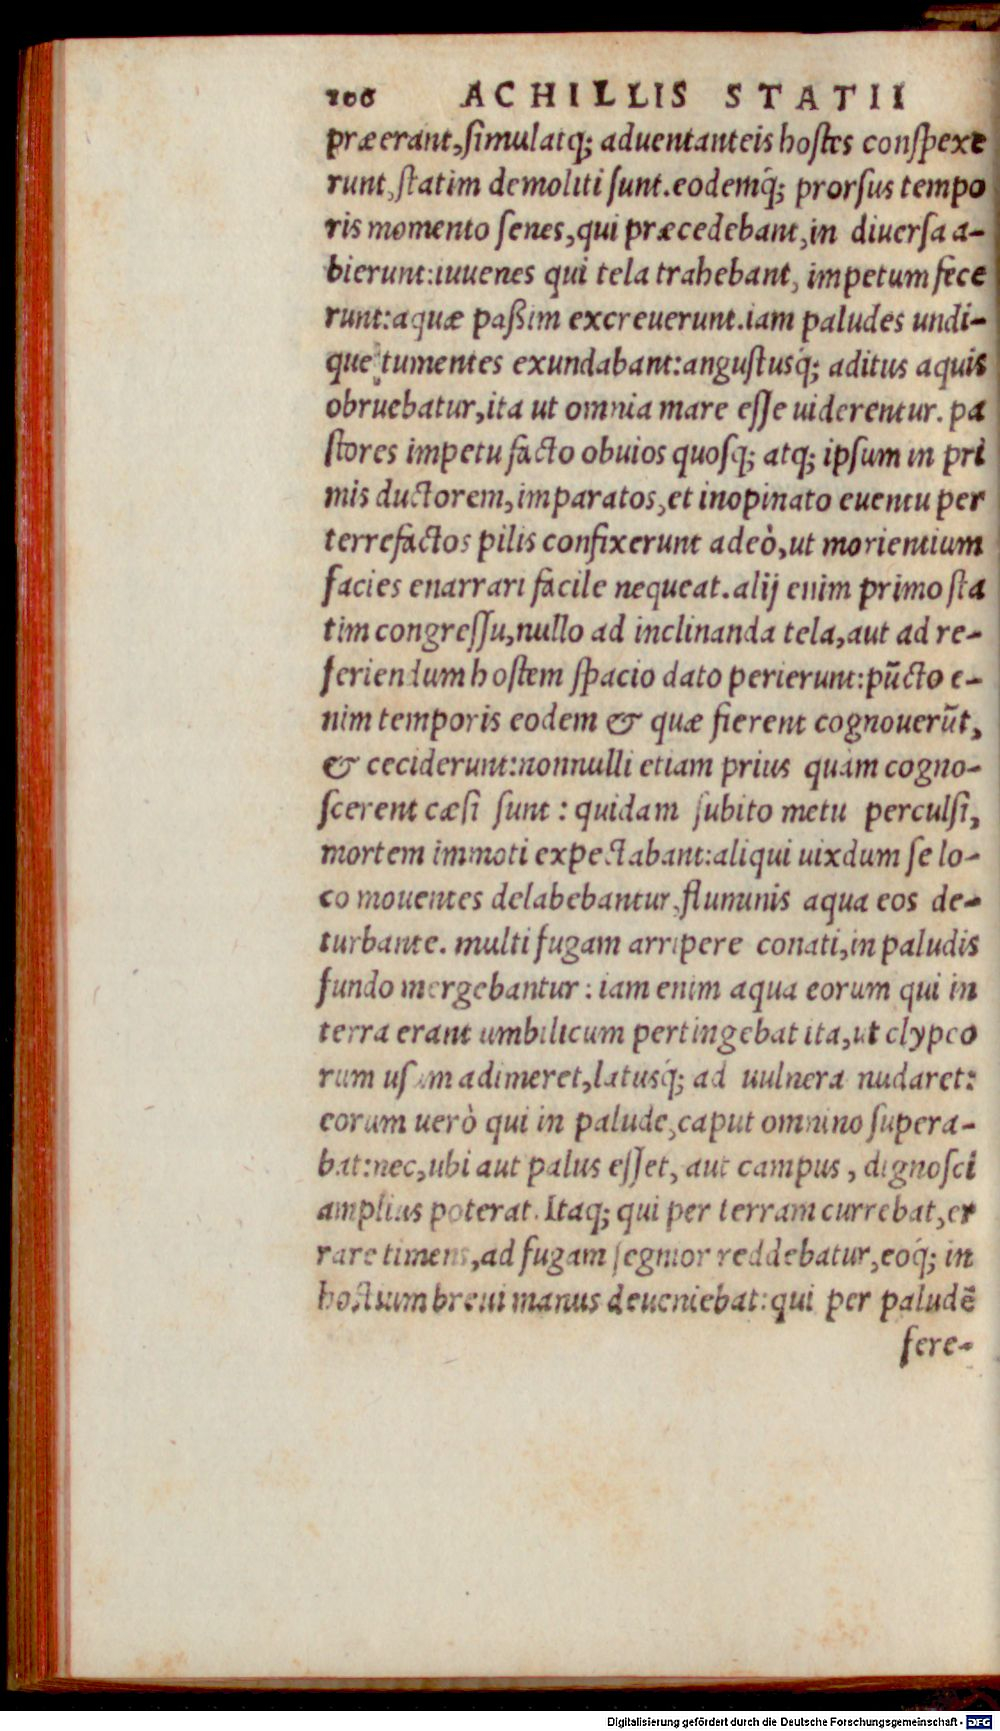 106 ACHILLIS STATII
præerant,simulatq; aduentanteis hostes conspexe
runt,statim demoliti sunt.eodemq́; prorsus tempo
ris momento senes,qui præcedebant,in diuersa a-
bierunt:iuuenes qui tela trahebant, impetum fece
runt:aquæ paßim excreuerunt.iam paludes undi-
que tumentes exundabant:angustusq́; aditus aquis
obruebatur,ita ut omnia mare esse uiderentur. pa
stores impetu facto obuios quosq; atq; ipsum in pri
mis ductorem,imparatos,et inopinato euentu per
terrefactos pilis confixerunt adeò,ut morientium
facies enarrari facile nequeat.alij enim primo sta
tim congressu,nullo ad inclinanda tela,aut ad re-
feriendum hostem spacio dato perierunt:pũcto e-
nim temporis eodem & quæ fierent cognouerũt,
& ceciderunt:nonnulli etiam prius quàm cogno-
scerent cæsi sunt : quidam subito metu perculsi,
mortem immoti expectabant:aliqui uixdum se lo-
co mouentes delabebantur,fluminis aqua eos de-
turbante. multi fugam arripere conati,in paludis
fundo mergebantur : iam enim aqua eorum qui in
terra erant umbilicum pertingebat ita,ut clypeo
rum usum adimeret,latusq́; ad uulnera nudaret:
eorum uerò qui in palude,caput omnino supera-
bat:nec,ubi aut palus esset, aut campus, dignosci
amplius poterat. Itaq; qui per terram currebat,er
rare timens,ad fugam segnior reddebatur,eoq́; in
hostium breui manus deueniebat:qui per paludẽ
fere-
Digitalisierung gefördert durch die Deutsche Forschungsgemeinschaft - DFG